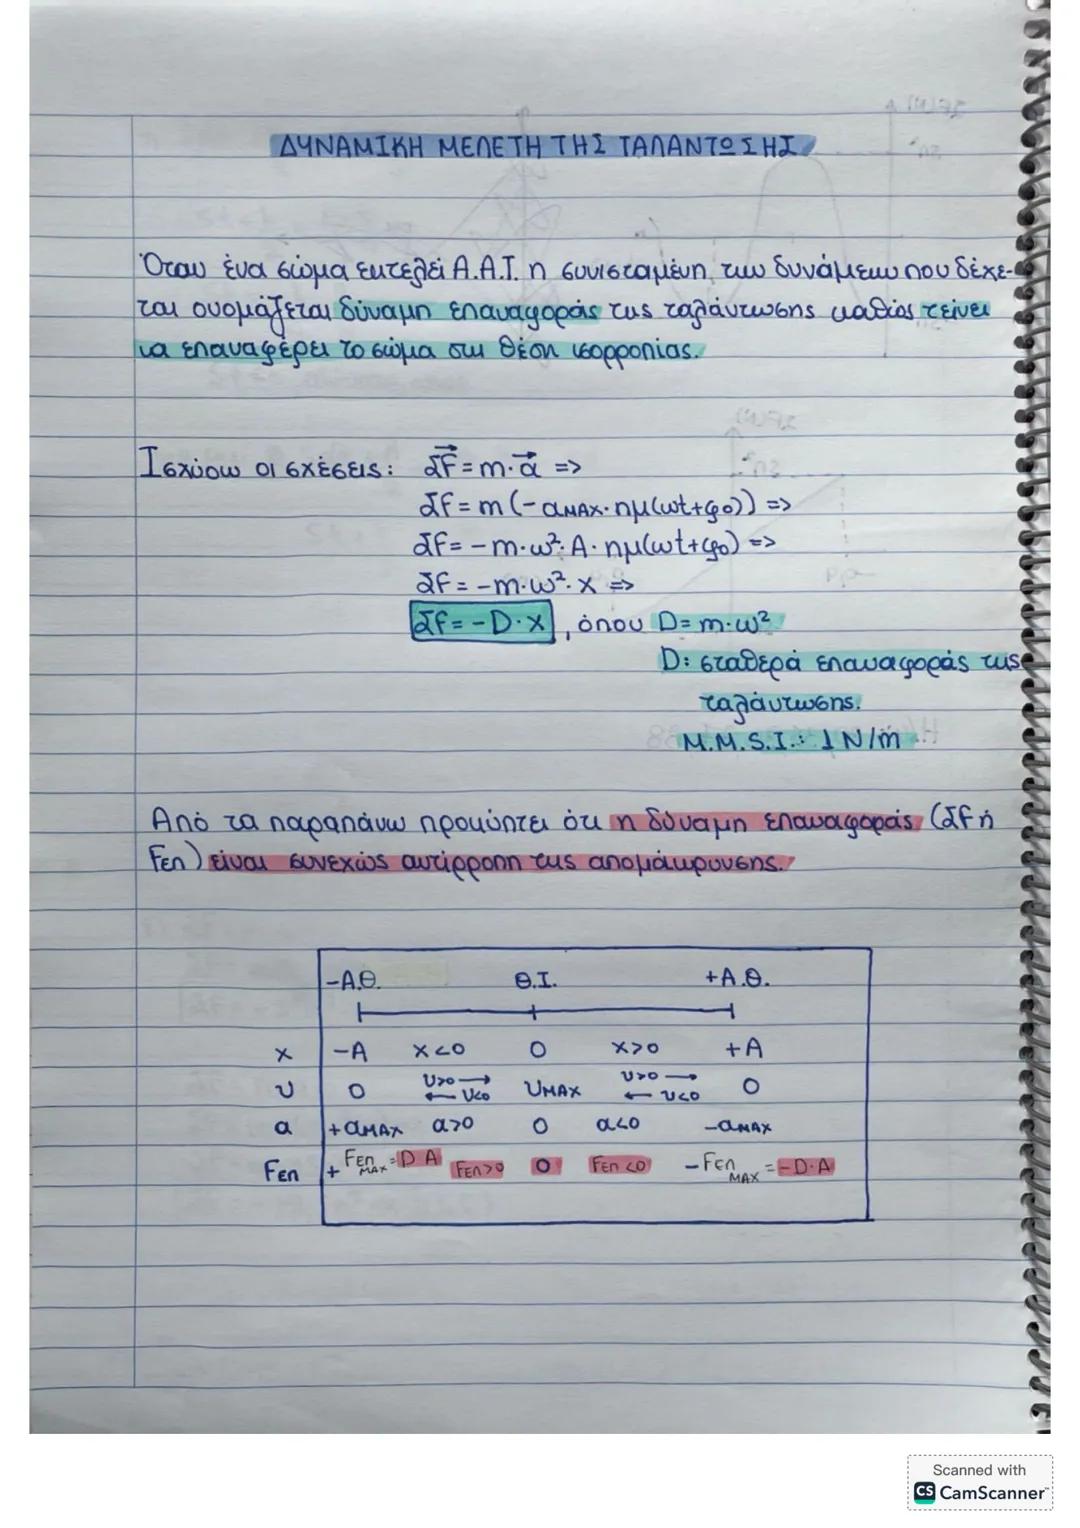 ΔΥΝΑΜΙΚΗ ΜΕΛΕΤΗ ΤΗΣ ΤΑΛΑΝΤΩΣΗΣ
Όταν ένα σώμα εκτελεί Α.Α.Τ. η συνισταμένη των δυνάμεων που δέχε-
ται ονομάζεται δύναμη επαναφοράς της ταλάντωσης καθώς τείνει
να επαναφέρει το σώμα στη θέση ισορροπίας.
Ισχύουν οι σχέσεις: ΣF⃗ = m·α⃗ =>
ΣF = m (-αMAX·ημ(ωt+φ0)) =>
ΣF = -m·ω²·A·ημ(ωt+φ0) =>
ΣF = -m·ω²·x =>
ΣF = -D·x, όπου D = m·ω²
D: σταθερά επαναφοράς της
ταλάντωσης.
Μ.Μ.S.I.: 1 N/m
Από τα παραπάνω προκύπτει ότι η δύναμη επαναφοράς (ΣF ή
Fεπ) είναι συνεχώς αντίρροπη της απομάκρυνσης.
-Α.Θ. Θ.Ι. +Α.Θ.
x -A x<0 0 x>0 +A
υ 0 υ>0 → ← υ<0 υMAX υ>0 → ← υ<0 0
α +αMAX α>0 0 α<0 -αMAX
Fεπ +FεπMAX = D A Fεπ>0 0 Fεπ<0 -FεπMAX = -D·A
Scanned with
CS CamScanner